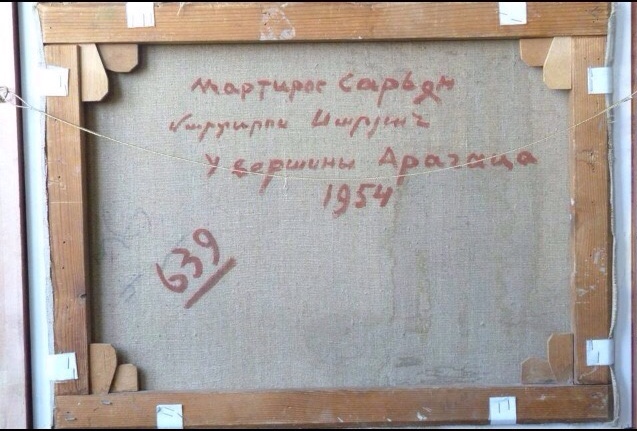 Мартирос Сарьян
Մարտիրոս Սարյան
У вершины Арагаца
1954
639